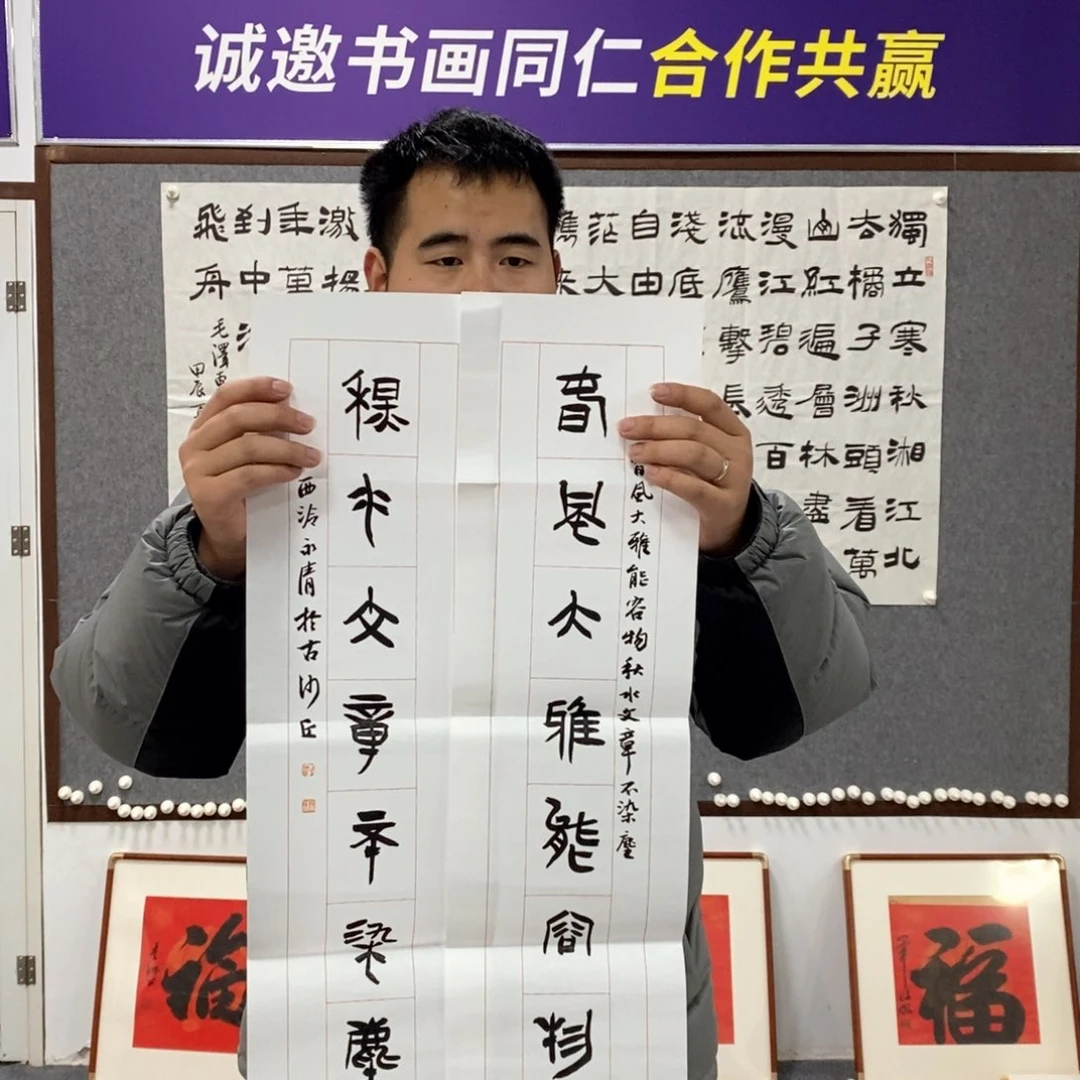 诚邀书画同仁合作共赢
獨立寒秋湘江北
去橘子洲頭看萬
山紅遍層林盡
漫江碧透百
流鷹擊長
淺底
自由
茫大
攜來
激揚
年萬
到中
飛舟
毛澤東
甲辰
風大雅能容物秋水文章不染塵
春風大雅能容物
秋水文章不染塵
永清於古沙丘
福
福